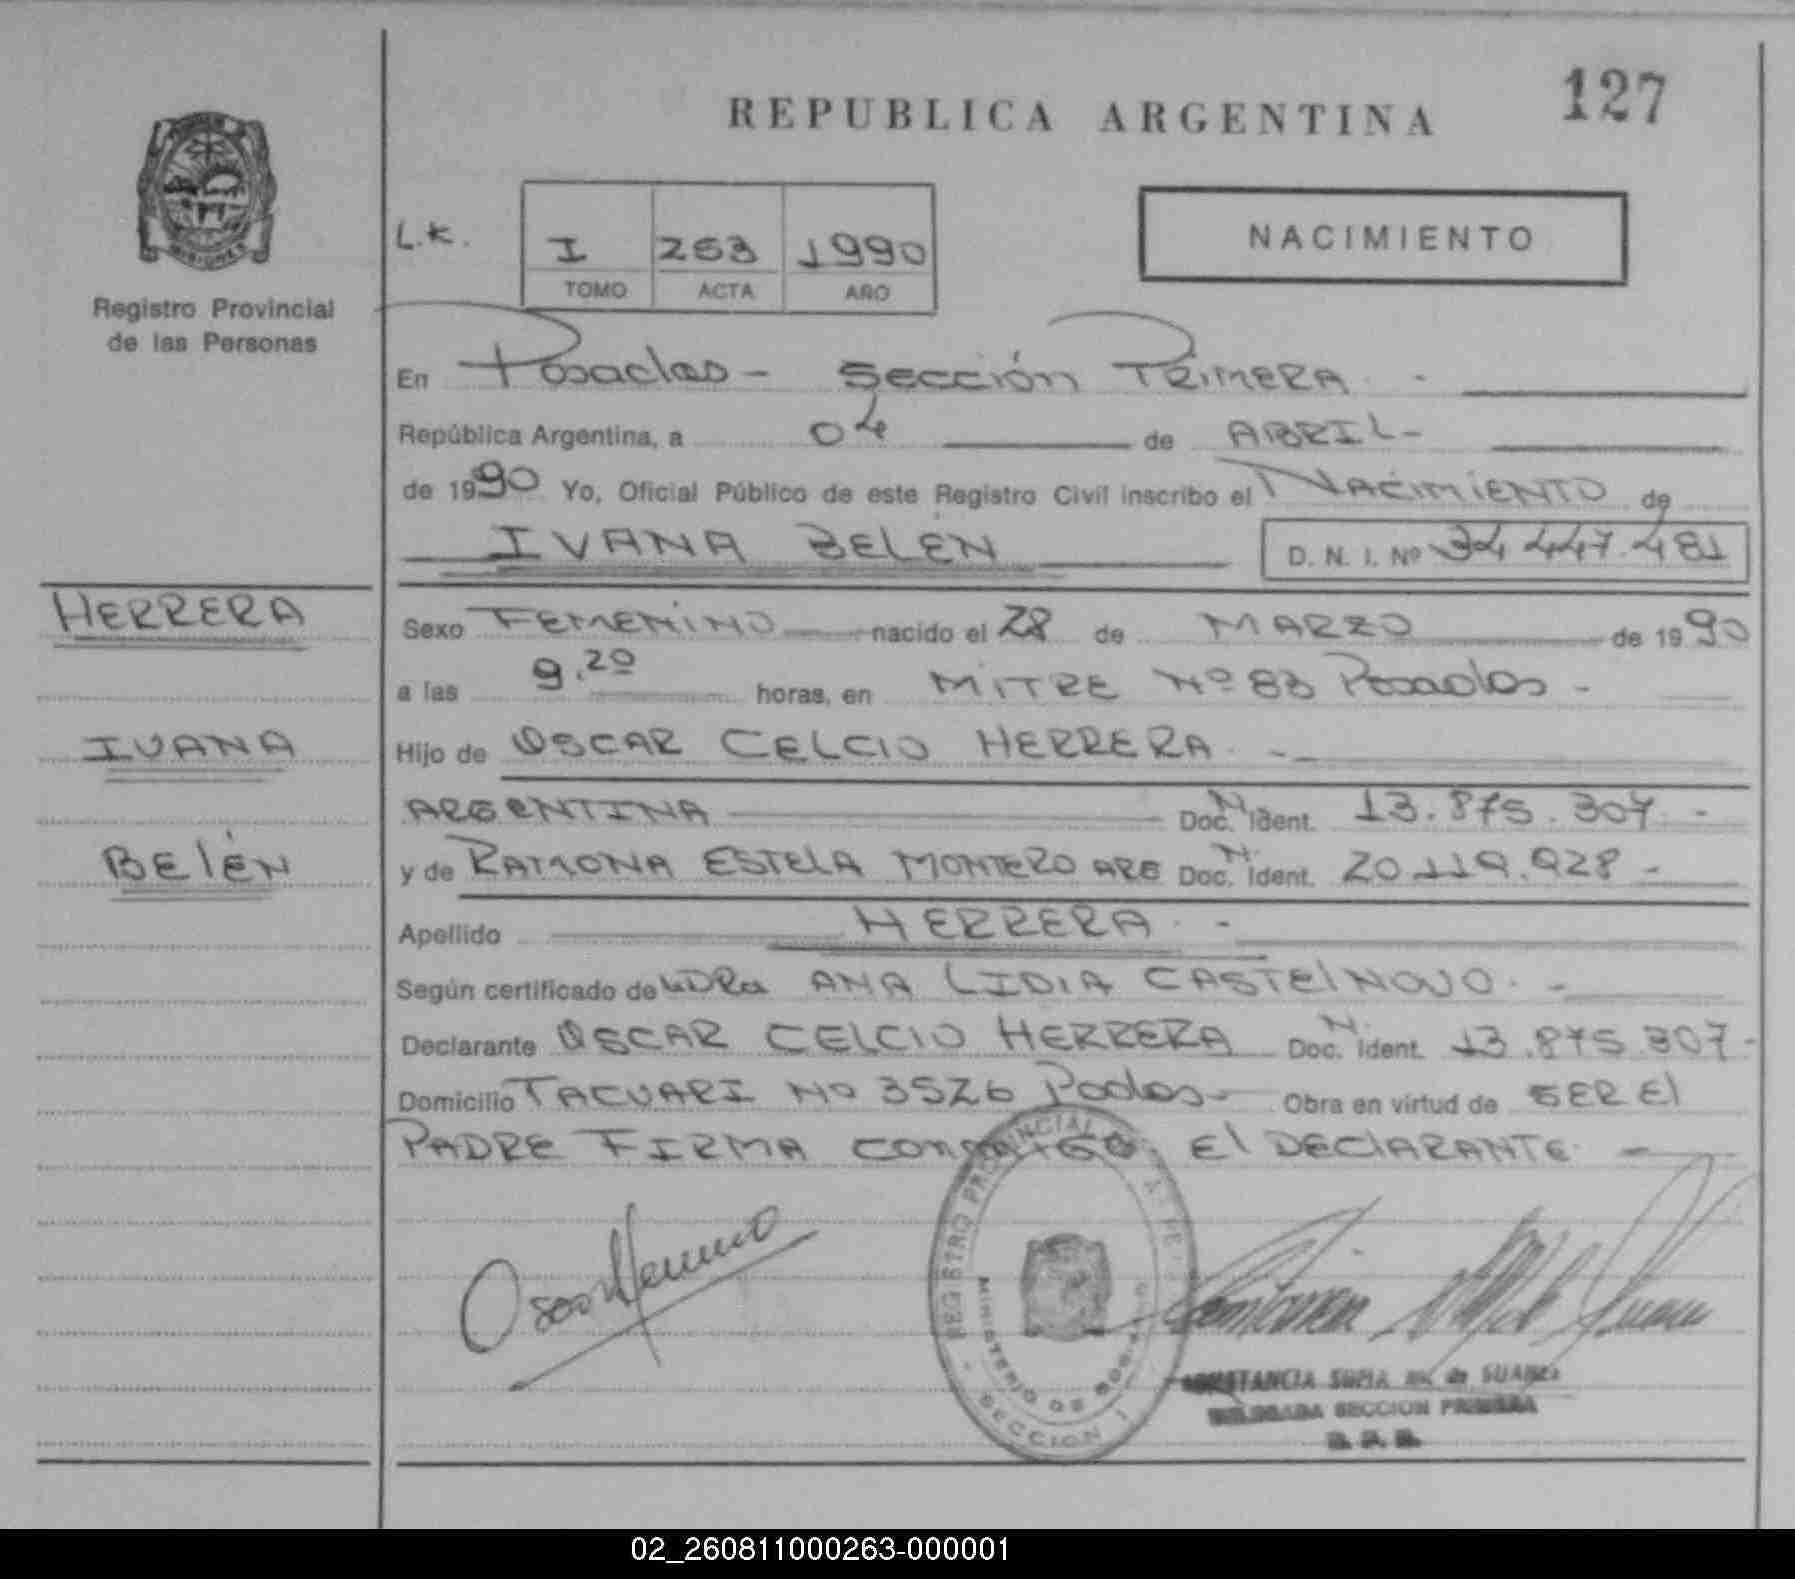 127
REPUBLICA ARGENTINA
MISIONES
Registro Provincial
de las Personas
L.K.
I 263 1990
TOMO ACTA AÑO
NACIMIENTO
En Posadas - Sección Primera. -
República Argentina, a 04 de ABRIL-
de 1990 Yo, Oficial Público de este Registro Civil inscribo el NACIMIENTO de
IVANA BELÉN D. N. I. Nº 34 447.481
HERRERA
IVANA
BELÉN
Sexo FEMENINO nacido el 28 de MARZO de 1990
a las 9.20 horas, en MITRE Nº 83 Posadas -
Hijo de OSCAR CELCIO HERRERA. -
ARGENTINA Doc. N. Ident. 13.875.307. -
y de RAMONA ESTELA MONTERO ARG Doc. N. Ident. 20.119.928 -
Apellido HERRERA. -
Según certificado de la DRa ANA LIDIA CASTELNOVO. -
Declarante OSCAR CELCIO HERRERA Doc. N. Ident. 13.875.307-
Domicilio TACUARI Nº 3526 Podas- Obra en virtud de SER El
PADRE FIRMA CONMIGO El DEClARANTE. -
REGISTRO PROVINCIAL DE LAS PE
MINISTERIO DE GOBIERNO
SECCION I
CONSTANCIA SOFIA de SUAREZ
DELEGADA SECCION PRIMERA
02_260811000263-000001